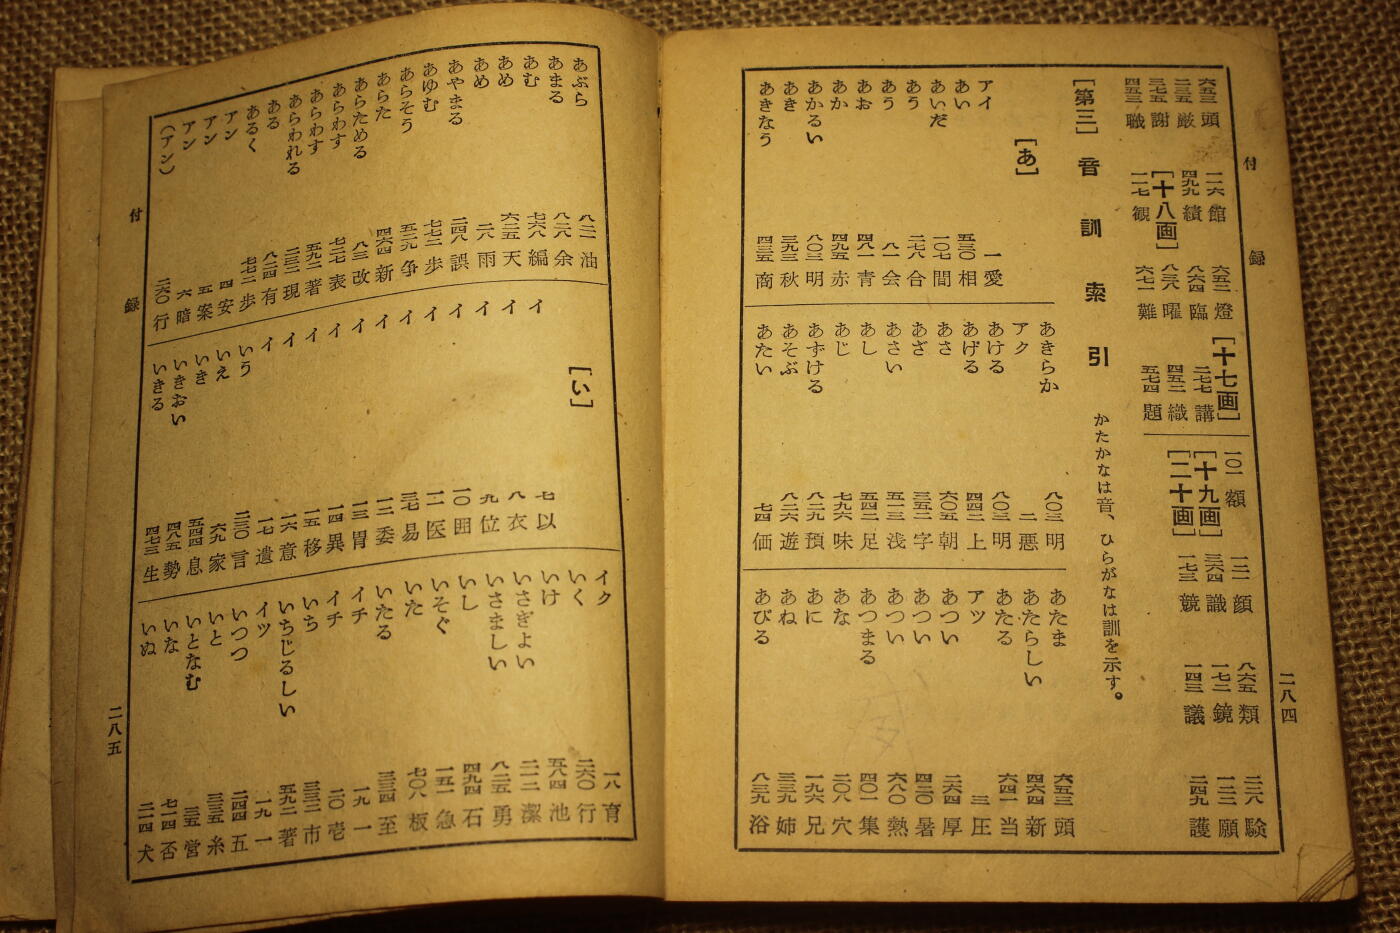 付録
二八四
六五三 頭 一一六 館 六五二 燈 [十七画]
二三五 厳 四九九 績 八六四 臨 二七七 講
三七五 謝 [十八画] 八三八 曜 四五二 織
四五三 職 一一七 観 六七一 難 五七四 題
一〇一 額 一三一 顔 八六五 類 二三八 験
[十九画] 三六四 識 一七二 鏡 一二三 願
[二十画] 一七三 競 一四三 議 二四九 護
[第三] 音訓索引 かたかなは音、ひらがなは訓を示す。
[あ]
アイ 一 愛
あい 五三〇 相
あいだ 一〇七 間
あう 二七八 合
あう 八一 会
あお 四八一 青
あか 四九五 赤
あかるい 八〇三 明
あき 三九三 秋
あきなう 四三五 商
あきらか 八〇三 明
アク 二 悪
あける 八〇三 明
あげる 四四二 上
あさ 六〇五 朝
あざ 三五二 字
あさい 五一三 浅
あし 五四二 足
あじ 七九六 味
あずける 八二九 預
あそぶ 八二六 遊
あたい 七四 価
あたま 六五三 頭
あたらしい 四六四 新
あたる 六四一 当
アツ 三 圧
あつい 二六四 厚
あつい 四二〇 暑
あつい 六八〇 熱
あつまる 四〇一 集
あな 二〇八 穴
あに 一九六 兄
あね 三三九 姉
あびる 八三九 浴
あぶら 八二一 油
あまる 八二八 余
あむ 七六八 編
あめ 六二五 天
あめ 二八 雨
あやまる 二四八 誤
あゆむ 七七二 歩
あらそう 五二九 争
あらた 四六四 新
あらためる 八三 改
あらわす 七二七 表
あらわす 五九二 著
あらわれる 二三二 現
ある 八二四 有
あるく 七七二 歩
アン 四 安
アン 五 案
アン 六 暗
(アン) 二六〇 行
[い]
イ 七 以
イ 八 衣
イ 九 位
イ 一〇 囲
イ 一一 医
イ 易
イ 一二 委
イ 一三 胃
イ 一四 異
イ 一五 移
イ 一六 意
イ 一七 遺
いう 二三〇 言
いえ 六九 家
いき 五四四 息
いきおい 四八五 勢
いきる 四七三 生
イク 一八 育
いく 二六〇 行
いけ 五八四 池
いさぎよい 二一二 潔
いさましい 八二五 勇
いし 四九四 石
いそぐ 一五一 急
いた 七〇八 板
いたる 三三四 至
イチ 一九 一
イチ 二〇 壱
いち 三三二 市
いちじるしい 五九二 著
イツ 一九 一
いつつ 二四四 五
いと 三三五 糸
いとなむ 三五 営
いな 七一四 否
いぬ 二一四 犬
付録
二八五